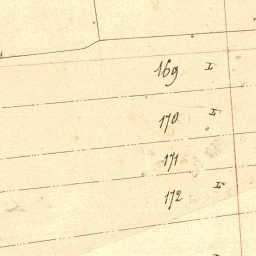 169 I
170 I
171
172 I